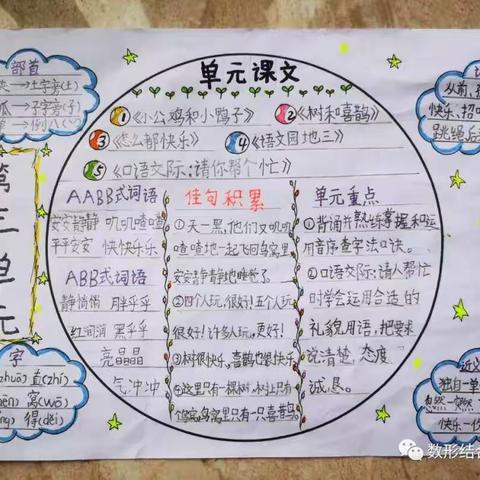 部首
土字旁(土)
子字旁(孑)
第三单元
字
直(zhí)
窝(wō)
得(děi)
单元课文
①《小公鸡和小鸭子》 ②《树和喜鹊》
③《怎么都快乐》 ④《语文园地三》
⑤《口语交际:请你帮个忙》
AABB式词语
安安静静 叽叽喳喳
平平安安 快快乐乐
ABB式词语
静悄悄 胖乎乎
红润润 黑乎乎
亮晶晶
气冲冲
佳句积累
①天一黑,他们又叽叽
喳喳地一起飞回鸟窝里
安安静静地睡觉了。
②四个人玩,很好!五个人玩,
很好!许多人玩,更好!
③树很快乐,喜鹊也很快乐。
④这里只有一棵树,树上只有
一个鸟窝,鸟窝里只有一只喜鹊。
单元重点
①背诵并熟练掌握和运
用音序查字法口诀。
②口语交际:请人帮忙
时学会运用合适的
礼貌用语,把要求
说清楚,态度
诚恳。
从前、
快乐、招呼
跳绳
近义
独自—单
忽然—突然
快乐—
数形结合